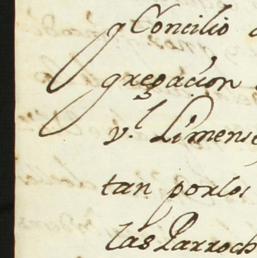 y Concilio
gregacion
v.l Limens
tan porlos
las Parroch